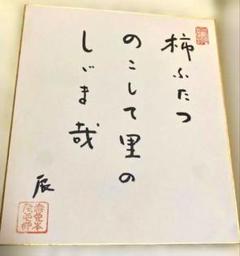 柿ふたつ
のこして里の
しゞま哉
辰